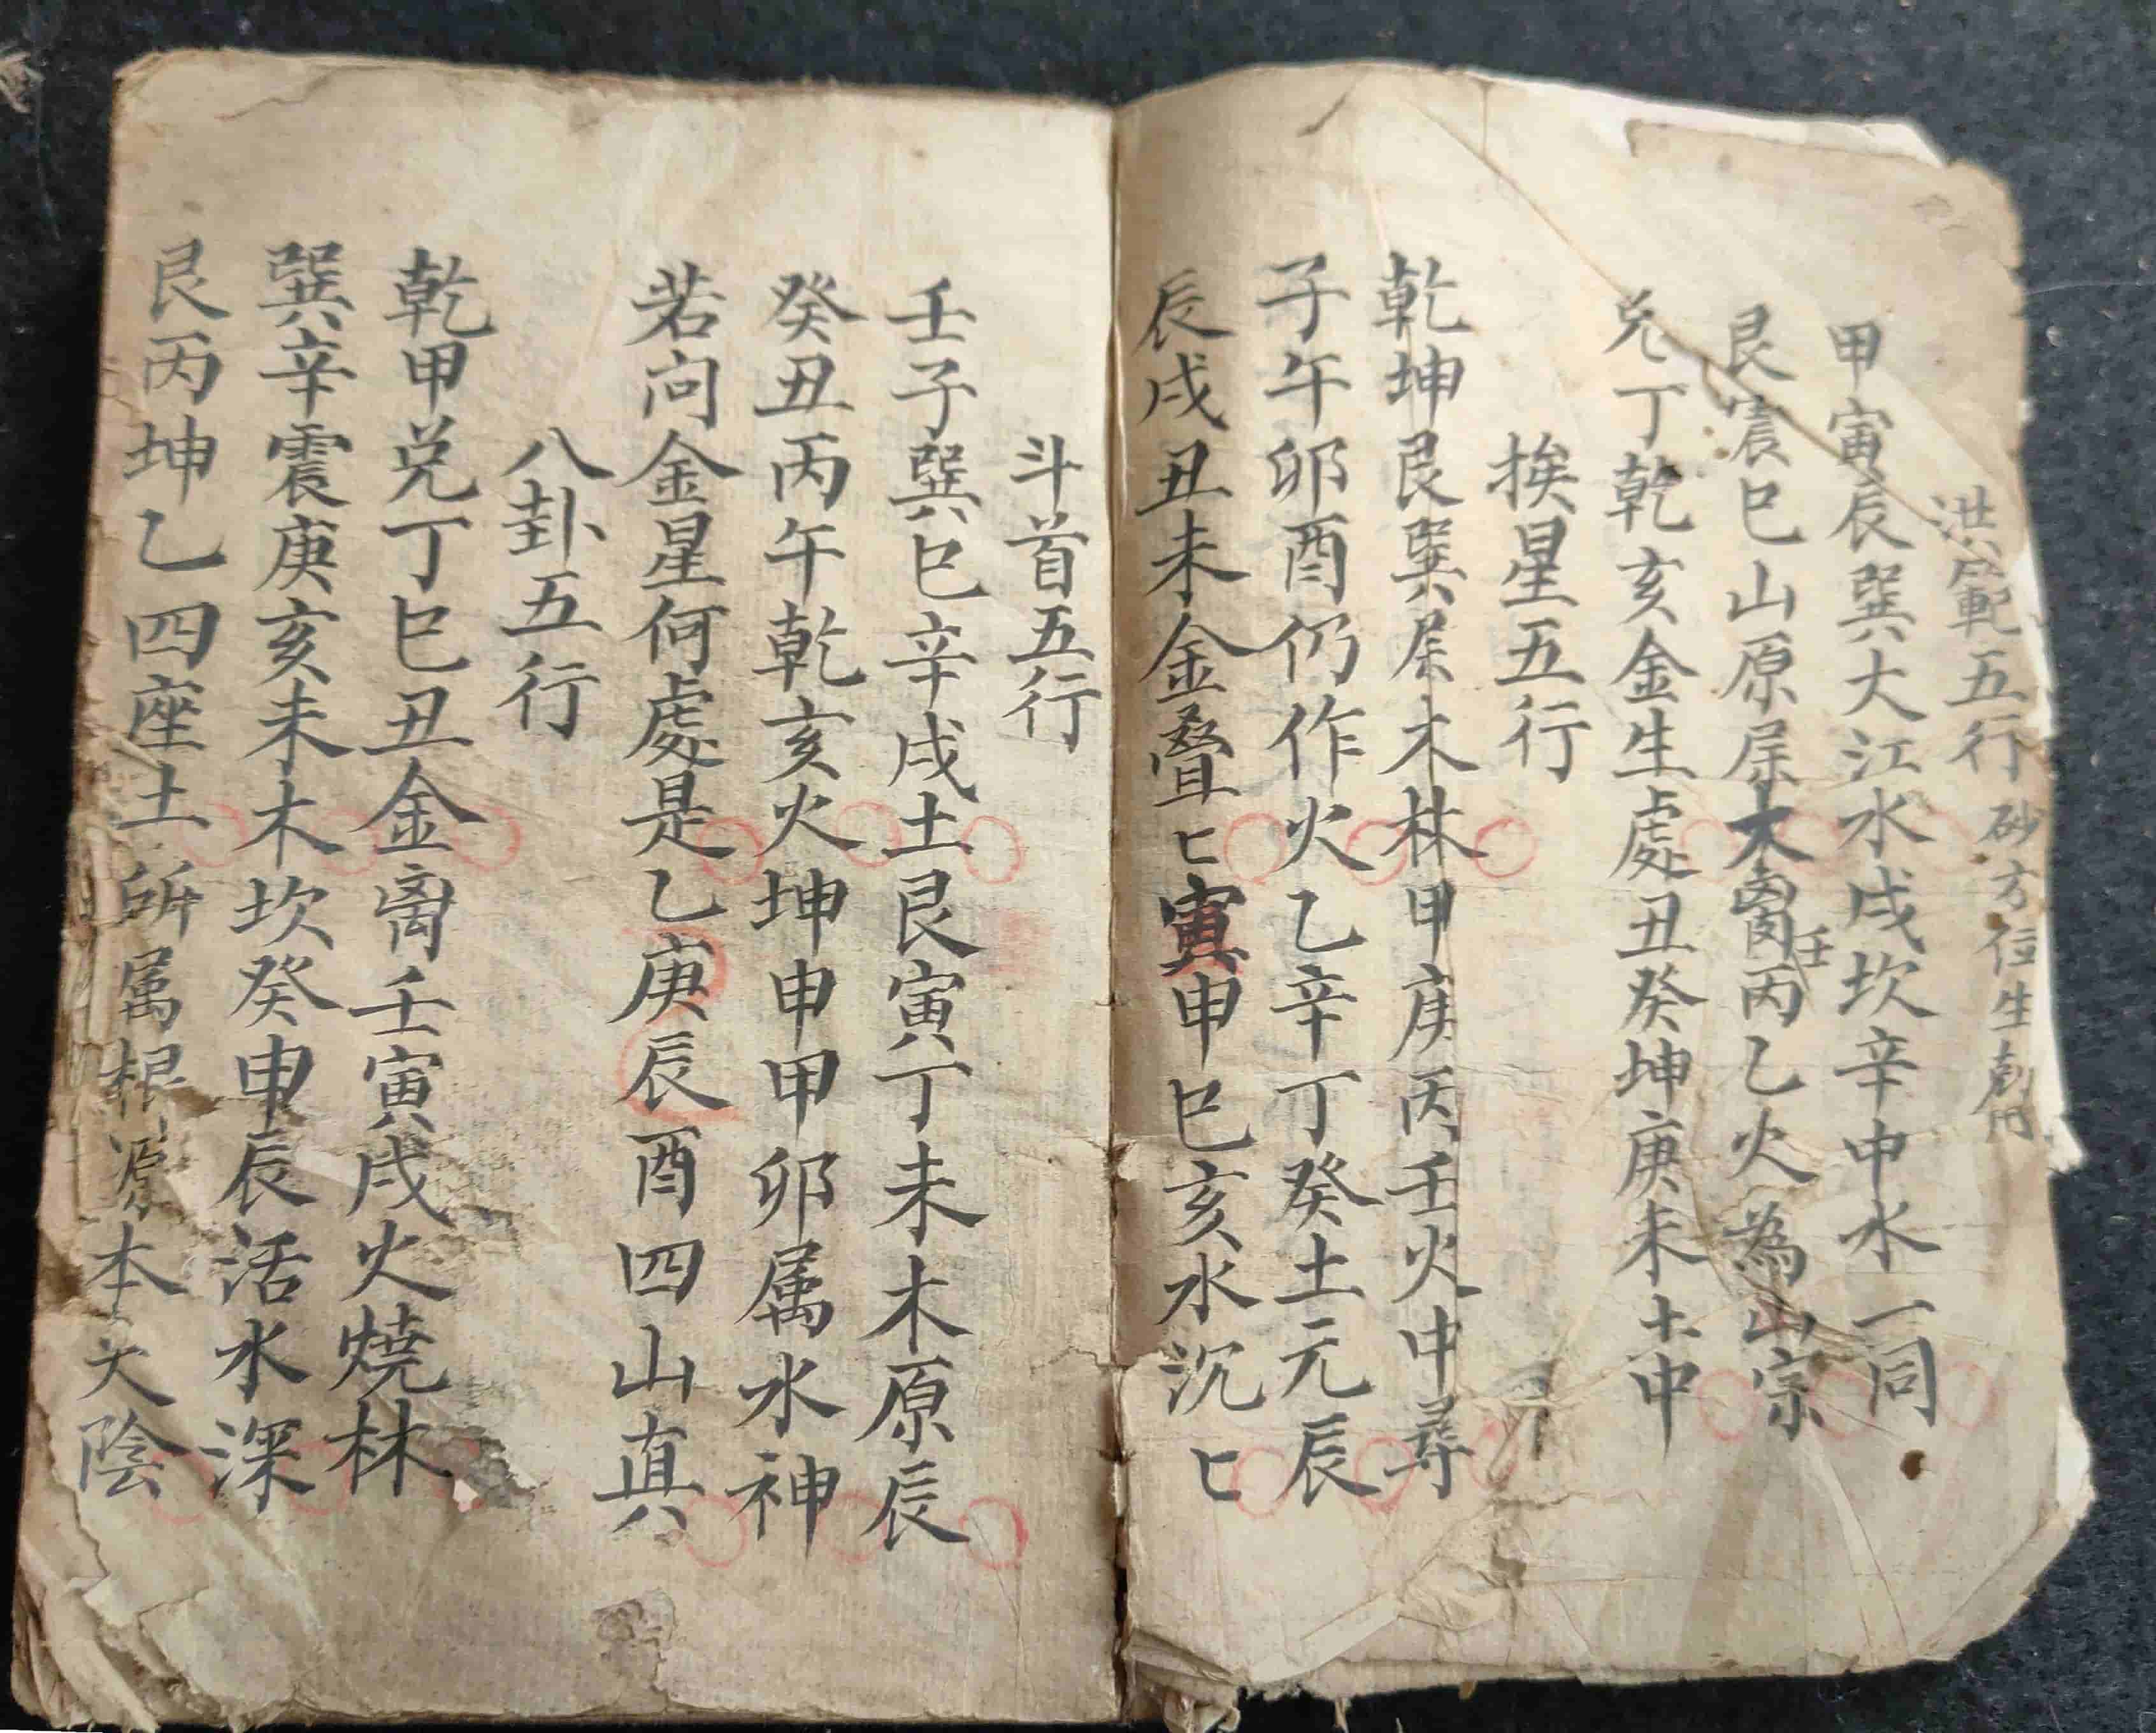 洪範五行砂方位生剋用
甲寅辰巽大江水戌坎辛申水一同
艮震巳山原屬木離壬丙乙火為山宗
兌丁乾亥金生處丑癸坤庚未土中
挨星五行
乾坤艮巽屬木林甲庚丙壬火中尋
子午卯酉仍作火乙辛丁癸土元辰
辰戌丑未金叠匕寅申巳亥水沉匕
斗首五行
壬子巽巳辛戌土艮寅丁未木原辰
癸丑丙午乾亥火坤申甲卯属水神
若问金星何處是乙庚辰酉四山真
八卦五行
乾甲兌丁巳丑金离壬寅戌火燒林
巽辛震庚亥未木坎癸申辰活水深
艮丙坤乙四座土所属根源本太陰